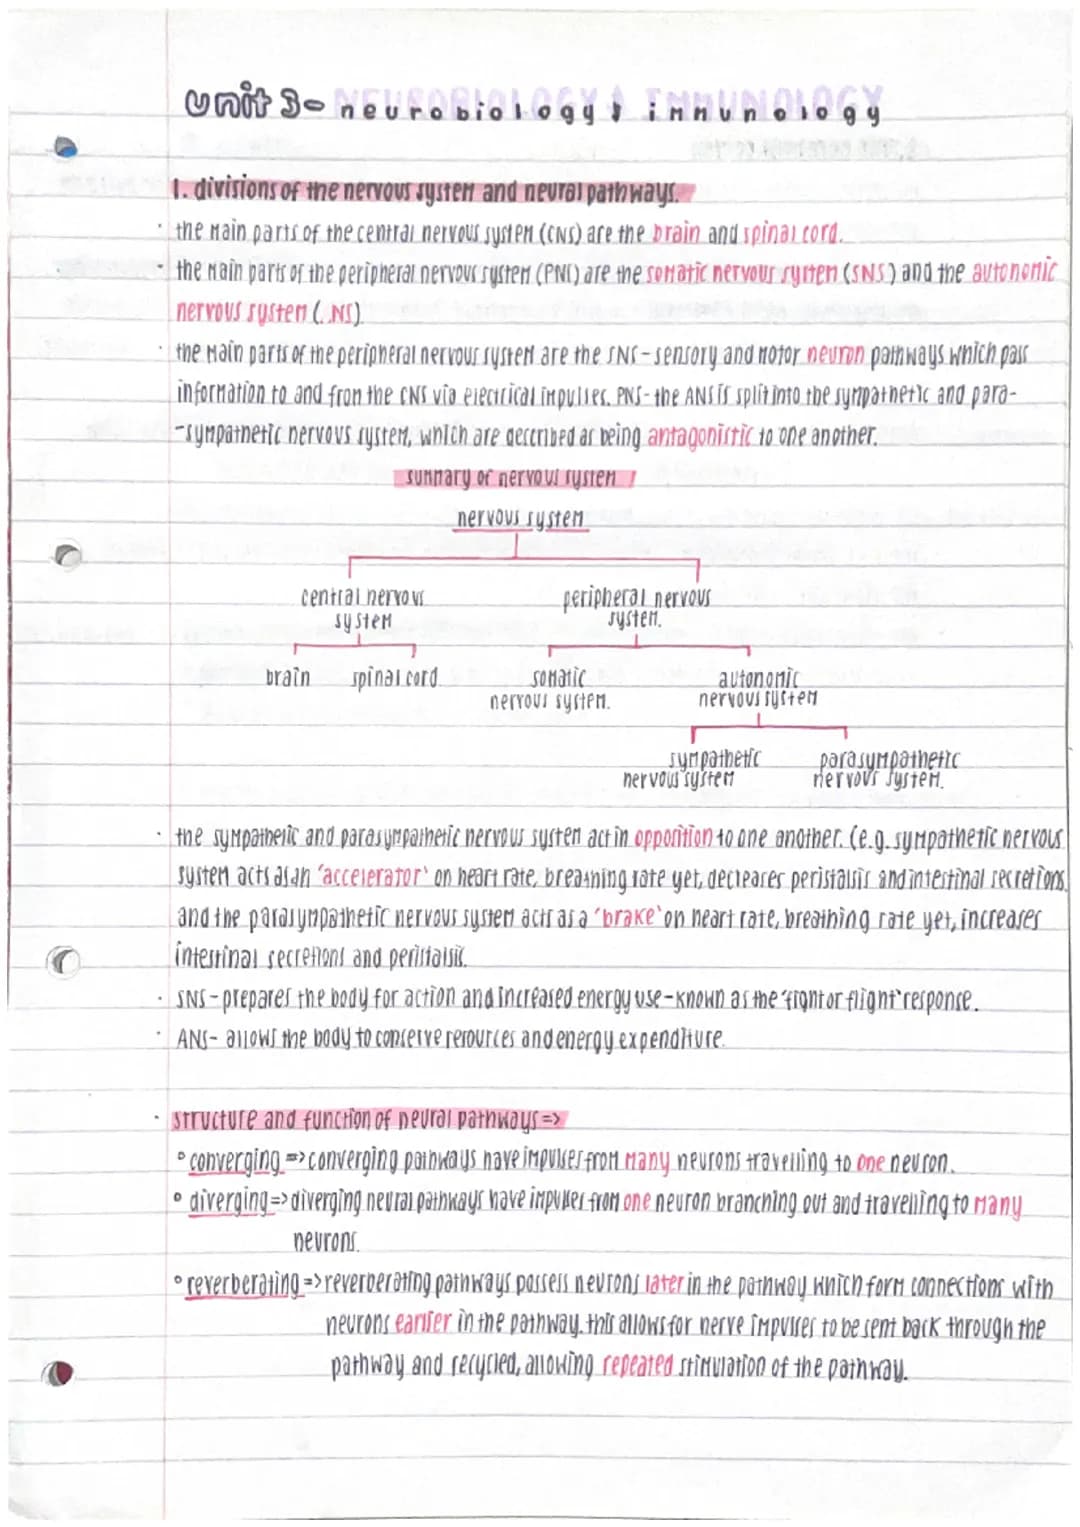 unit 3- neurobiology & immunology
NEUROBIOLOGY & IMMUNOLOGY
1. divisions of the nervous system and neural pathways.
· the main parts of the central nervous system (CNS) are the brain and spinal cord.
· the main parts of the peripheral nervous system (PNS) are the somatic nervous system (SNS) and the autonomic
nervous system (.NS)
· the main parts of the peripheral nervous system are the SNS- sensory and motor neuron pathways which pass
information to and from the CNS via electrical impulses. PNS- the ANS is split into the sympathetic and para-
-sympathetic nervous system, which are described as being antagonistic to one another.
summary of nervous system
nervous system
central nervous peripheral nervous
system system.
brain spinal cord somatic autonomic
nervous system. nervous system
sympathetic parasympathetic
nervous system nervous system.
· the sympathetic and parasympathetic nervous system act in opposition to one another. (e.g. sympathetic nervous
system acts as an 'accelerator' on heart rate, breathing rate yet, decreases peristalsis and intestinal secretions.
and the parasympathetic nervous system acts as a 'brake' on heart rate, breathing rate yet, increases
intestinal secretions and peristalsis.
· SNS- prepares the body for action and increased energy use- known as the 'fight or flight' response.
· ANS- allows the body to conserve resources and energy expenditure.
· structure and function of neural pathways =>
° converging => converging pathways have impulses from many neurons travelling to one neuron.
° diverging => diverging neural pathways have impulses from one neuron branching out and travelling to many
neurons.
° reverberating => reverberating pathways possess neurons later in the pathway which form connections with
neurons earlier in the pathway. this allows for nerve impulses to be sent back through the
pathway and recycled, allowing repeated stimulation of the pathway.